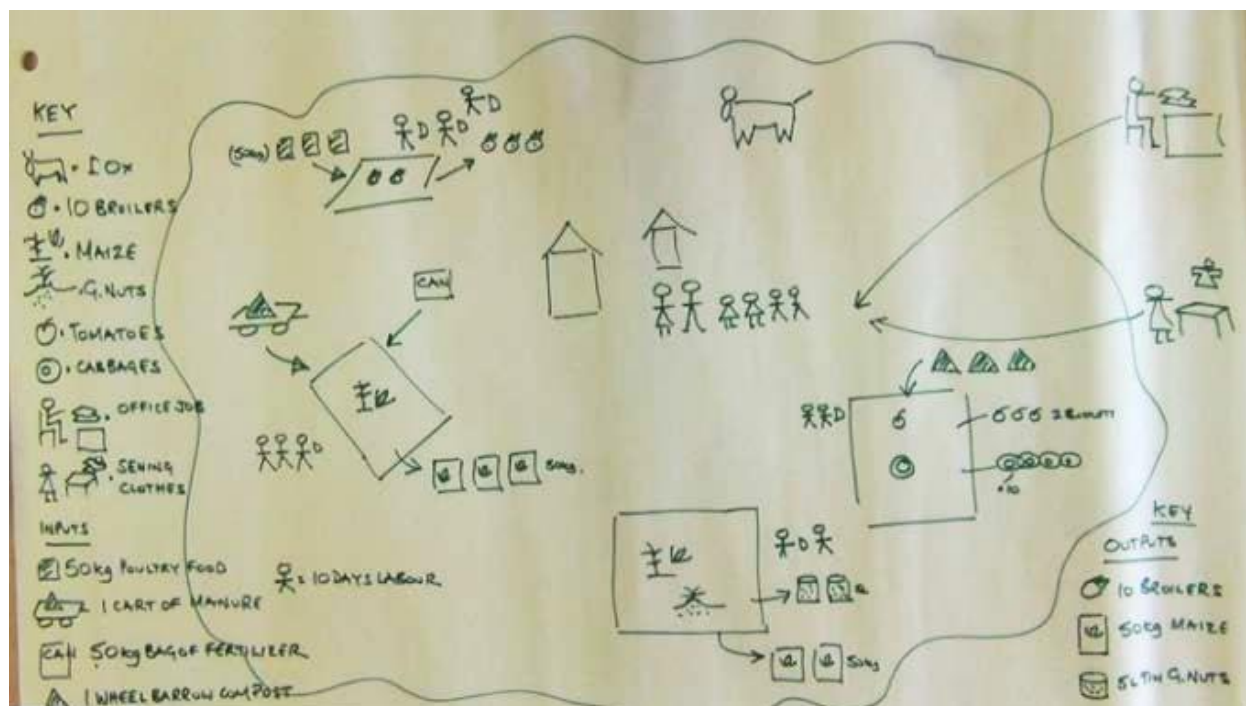 KEY
= 1 OX
= 10 BROILERS
= MAIZE
= G.NUTS
= TOMATOES
= CABBAGES
= OFFICE JOB
= SEWING
CLOTHES
INPUTS
50kg POULTRY FOOD
1 CART OF MANURE
CAN 50kg BAG OF FERTILIZER
1 WHEEL BARROW COMPOST
= 10 DAYS LABOUR
(50kg)
D
D D
CAN
D
50kg.
D
x10
D
50kg
KEY
OUTPUTS
10 BROILERS
50kg MAIZE
5L TIN G.NUTS